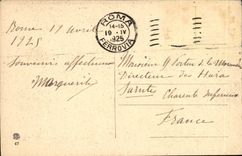 Rome 17 avril
1925
Souvenirs affectueux
Marguerite
ROMA
14-15
19·IV
1925
FERROVIA
Monsieur
Directeur des Haras
Saintes
Charente Inférieure
France
47